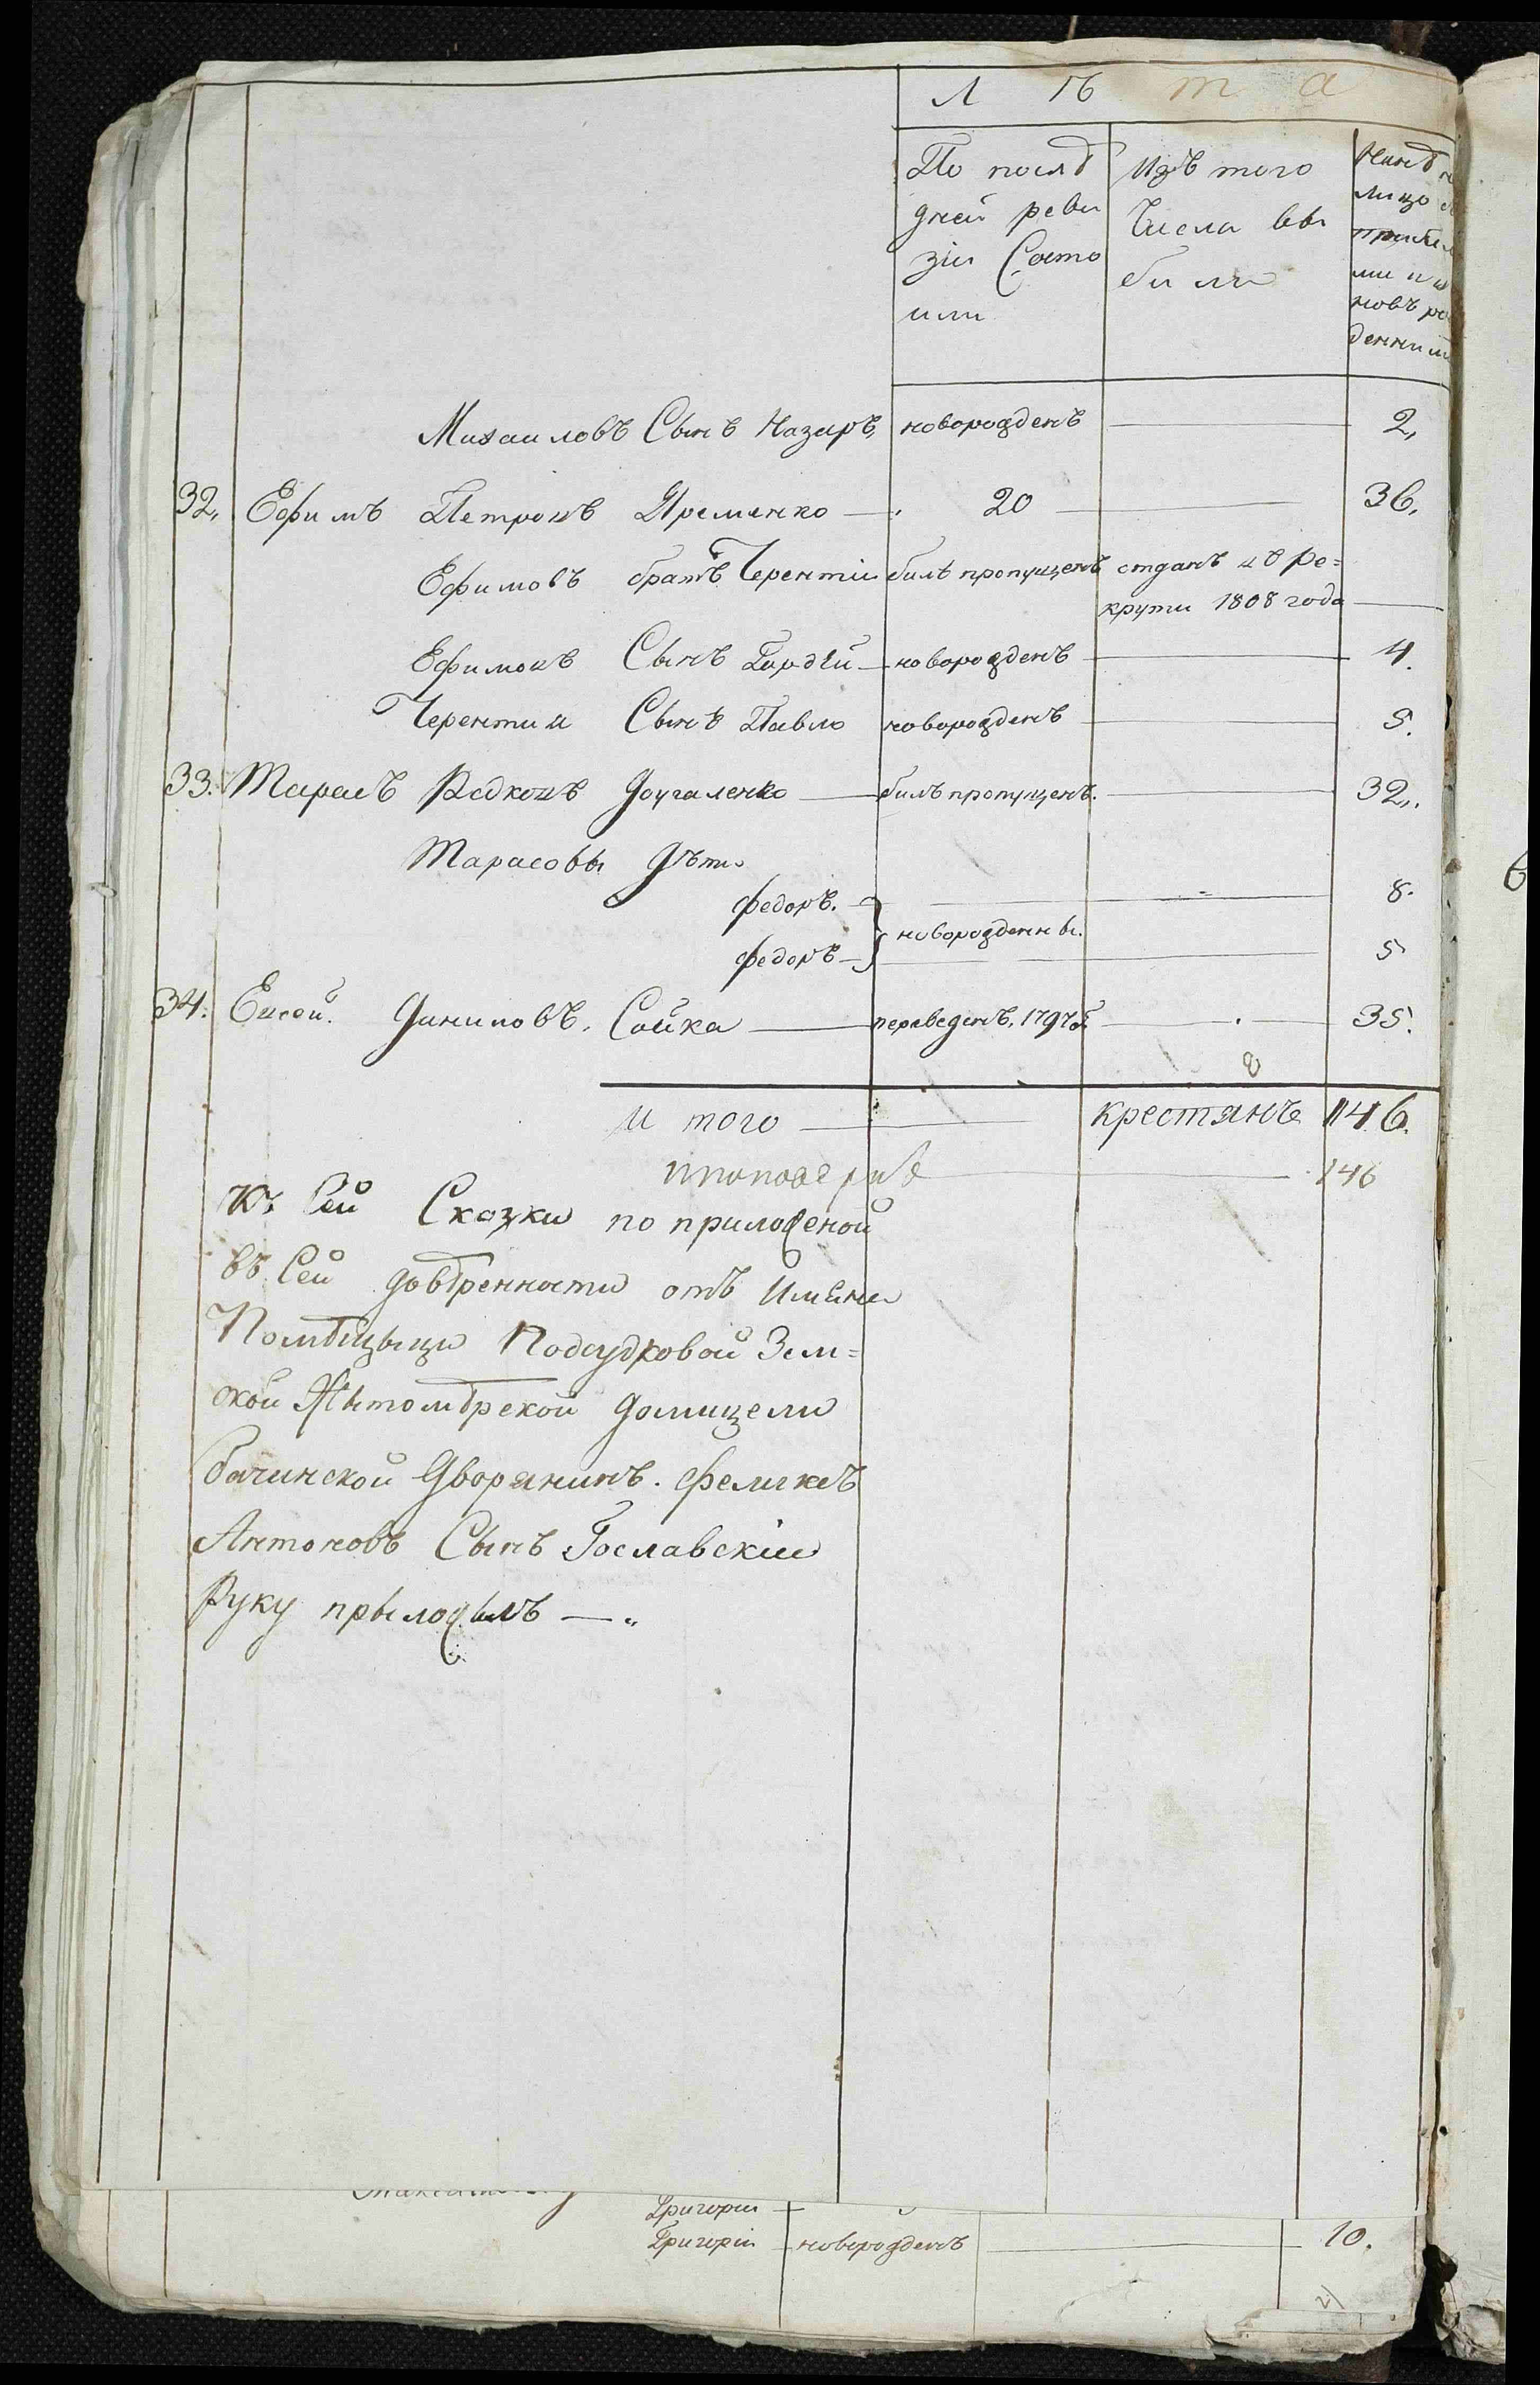 Л ѣ т а
По послѣ
дней реви
зіи Состо
или
Изъ того
Числа вы
били
Нинѣ
лицо
новъ ро
денними
Михаиловъ Сынъ Назаръ, новорозденъ 2,
32, Ефимъ Петровъ Яременко 20 36,
Ефимовъ братъ Терентіи билъ пропущенъ отданъ въ Ре=
крути 1808 года
Ефимовъ Сынъ Гордѣй новорозденъ 4.
Терентия Сынъ Павло новорозденъ 5.
33. Тарасъ Редковъ Доугаленко билъ пропущенъ. 32,.
Тарасовы Дѣти
Федоръ. 8.
новорозденны.
Федоръ 5
34. Евсей. Даниловъ. Сайка переведенъ, 1797 г. 35.
И того крестянъ 146.
итоповеркѣ 146
Къ Сей Сказки по прилоденой
въ Сей довѣренности отъ Имени
Помѣщыци Подсудковой Зем=
ской Житомѣрской Домицели
бачинской Дворянинъ. Феликсъ
Антоновъ Сынъ Гославскіи
Руку прылодылъ —„
Григории
Григоріи новорозденъ 10.